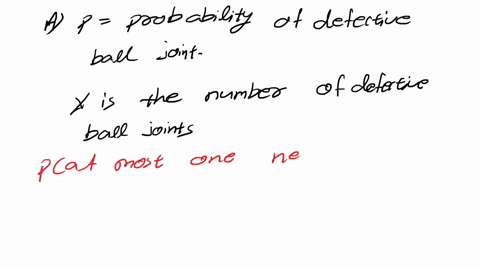 A) p = probability of defective
ball joint.
X is the number of defective
ball joints
P(at most one ne